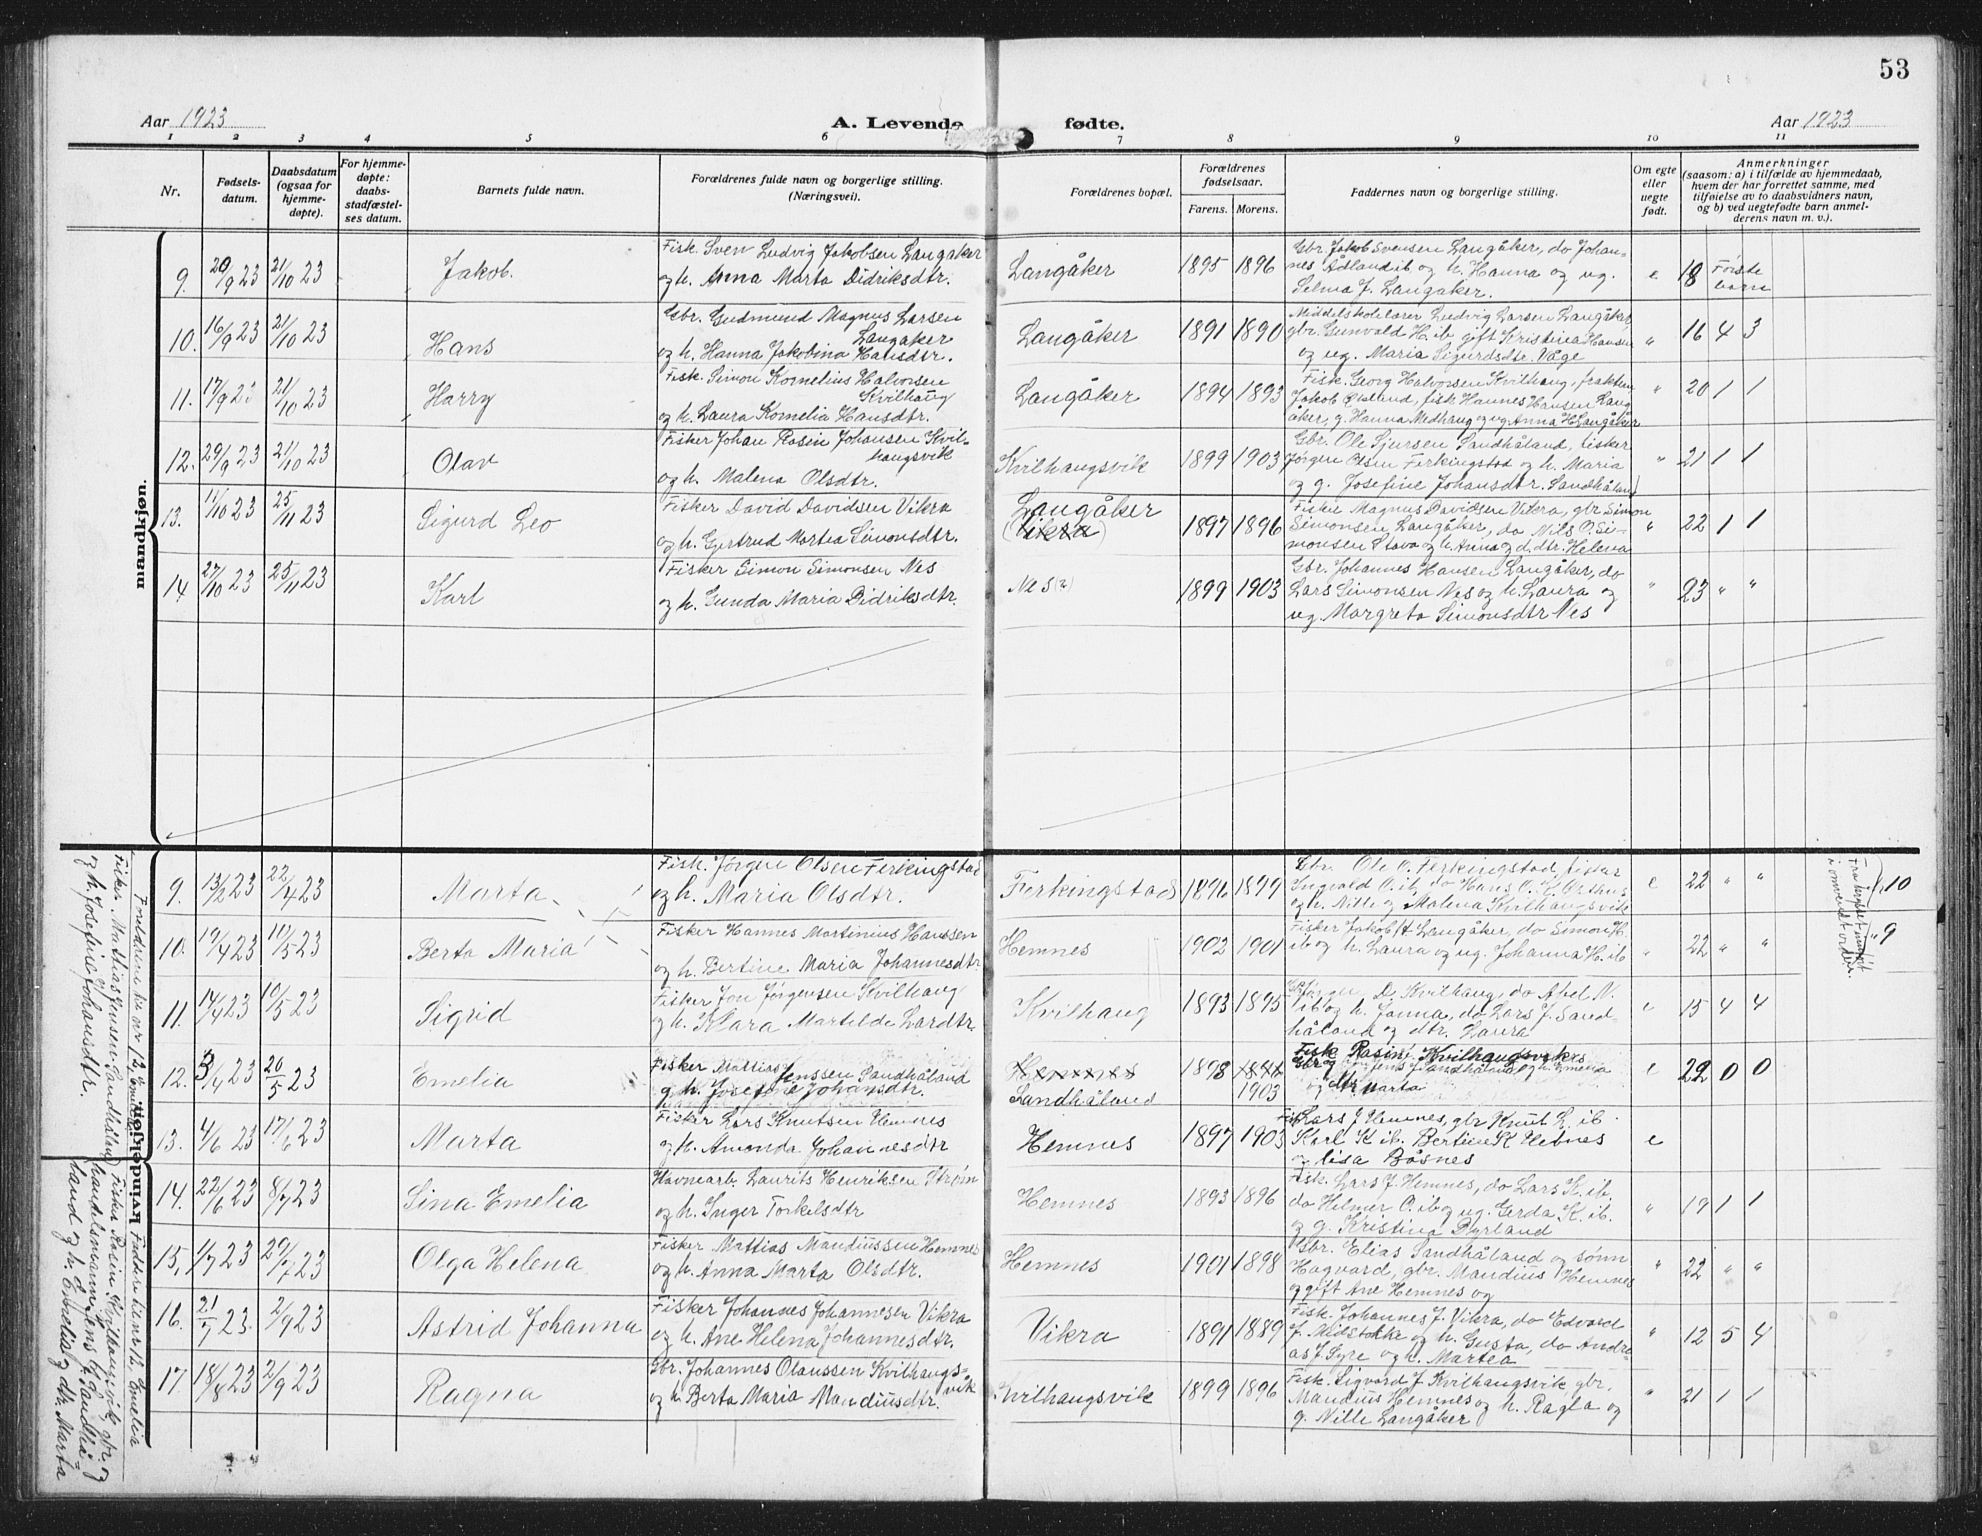 53
Aar 1923
A. Levende
fødte.
Aar 1923
1 2 3 4 5 6 7 8 9 10 11
Nr.
Fødsels-
datum.
Daabsdatum
(ogsaa for
hjemme-
døpte).
For hjemme-
døpte:
daabs-
stadfæstel-
ses datum.
Barnets fulde navn.
Forældrenes fulde navn og borgerlige stilling.
(Næringsvei).
Forældrenes bopæl.
Forældrenes
fødselsaar.
Farens. Morens.
Faddernes navn og borgerlige stilling.
Om egte
eller
uegte
født.
Anmerkninger
(saasom: a) i tilfælde av hjemmedaab,
hvem der har forrettet samme, med
tilføielse av to daabsvidners navn,
og b) ved uegtefødte barn anmel-
derens navn m. v.).
mandkjøn.
9. 20/9 23 21/10 23 Jakob.
Fisk. Sven Ludvig Jakobsen Langåker
og h. Anna Marta Didriksdtr.
Langåker 1895 1896
Gbr. Jakob Svensen Langåker, do Johan-
nes Ådland ib og h. Hanna og ug.
Selma J. Langåker.
e 18 Første
barn
10. 16/9 23 21/10 23 Hans
Gbr. Gudmund Magnus Larsen
Langåker
og h. Hanna Jakobina Hansdtr.
Langåker 1891 1890
Middelskolelærer Ludvig Larsen Langåker,
gbr. Gunvald H. ib, gift Kristina Hansen
og ug. Maria Sigurdsdtr. Våge
" 16 4 3
11. 17/9 23 21/10 23 Harry
Fisk. Simon Kornelius Halvorsen
Kvilhaug
og h. Laura Kornelia Hansdtr.
Langåker 1894 1893
Fisk. Georg Halvorsen Kvilhaug,
Jakob fisk Hannes Hansen Lang
åker, g. Hanna Medhaug og ug Anna H Langåker
" 20 1 1
12. 29/9 23 21/10 23 Olav
Fisker Johan Rasin Johansen Kvil-
haugsvik
og h. Malena Olsdtr.
Kvilhaugsvik 1899 1903
Gbr. Ole Sjursen Sandhåland, fisker
Jørgen Olsen Ferkingstad og h. Maria
og g. Josefine Johansdtr. Sandhåland
" 21 1 1
13. 11/10 23 25/11 23 Sigurd Leo
Fisker David Davidsen Vikra
og h. Gjertrud Martea Simonsdtr.
Langåker
(Vikra) 1897 1896
Fisker Magnus Davidsen Vikra, gbr Simon
Simonsen Langåker, do Nils O. Si-
monsen Stava og h. Anna og d. dtr. Helena
" 22 1 1
14 27/10 23 25/11 23 Karl
Fisker Simon Simonsen Nes
og h. Gunda Maria Didriksdtr.
Nes 1899 1903
Gbr. Johannes Hansen Langåker, do
Lars Simonsen Nes og h. Laura og
ug. Margreta Simonsdtr Nes
" 23 " "
kvindekjøn.
9. 13/2 23 22/4 23 Marta
Fisk. Jørgen Olsen Ferkingstad
og h. Maria Olsdtr.
Ferkingstad 1896 1899
Gbr. Ole O. Ferkingstad, fisker
Ingvald O. ib, do Hans O. K.
og h. Nille og Malena Kvilhaugsvik
e 22 " " 10
10. 19/4 23 10/5 23 Berta Maria
Fisker Hannes Martinius Hanssen
og h. Bertine Maria Johannesdtr
Hemnes 1902 1901
Fisker Jakob H Langåker, do Simon H.
ib og h. Laura og ug. Johanna H. ib
" 22 " " " 9
i omvendt orden
11. 14/4 23 10/5 23 Sigrid
Fisker Jon Jørgensen Kvilhaug
og h. Klara Martilde Lardtr
Kvilhaug 1893 1895
Jørgen D. Kvilhaug, do Abel N.
ib og h. Janna, do Lars J. Sand-
håland og dtr. Laura
e 15 4 4
12. 3/4 23 20/5 23 Emelia
Fisker Mattias Jenssen Sandhåland
og h. Josefine Johansdtr.
Hemnes
Sandhåland 1898 1903
Fisk Rasin Kvilhaugsvik
gbr Jens J Sandhåland og h. Emelia
og dtr Marta
e 22 0 0
13. 4/6 23 17/6 23 Marta
Fisker Lars Knutsen Hemnes
og h. Amanda Johannesdtr
Hemnes 1897 1903
Lars J Hemnes, gbr Knut L. ib
Karl K ib. Bertine K Hemnes
og Lisa Båsnes
e
14. 22/6 23 8/7 23 Sina Emelia
Havnearb. Laurits Henriksen Strøm
og h. Inger Torkelsdtr
Hemnes 1893 1896
Fisk. Lars J. Hemnes, do Lars K. ib.
do Helmer O. ib og ug. Gerda K. ib.
og g. Kristina Byrland
" 19 1 1
15. 1/7 23 29/7 23 Olga Helena
Fisker Mattias Mandiussen Hemnes
og h. Anna Marta Olsdtr.
Hemnes 1901 1898
Gbr. Elias Sandhåland og sønn
Hagvard, gbr. Mandius Hemnes
og gift Ane Hemnes og
" 22 " "
16. 21/7 23. 2/9 23 Astrid Johanna
Fisker Johannes Johannesen Vikra
og h. Ane Helena Johannesdtr.
Vikra 1891 1889
Fisk. Johannes J. Vikra, do Edvard
J. Midstokke og h. Gusta, do Andre-
as J. Syre og h. Martea
" 12 5 4
17. 18/8 23 2/9 23 Ragna
Gbr. Johannes Olaussen Kvilhaugs-
vik
og h Berta Maria Mandiusdtr.
Kvilhaugsvik 1899 1896
Fisk. Sigvard J. Kvilhaugsvik gbr.
Mandius Hemnes og h. Ragla og
g. Nille Langåker
" 21 1 1
Foreldrene til nr 12, Emelia
Fisker Mattias Jensen Sandhåland
og h. Josefine Johansdtr.
Faddere til nr 12 Emelia
Fisker Rasin Kvilhaugsvik, gbr. og
handelsmann Jens J. Sandhå-
land og h. Emelia og dtr. Marta